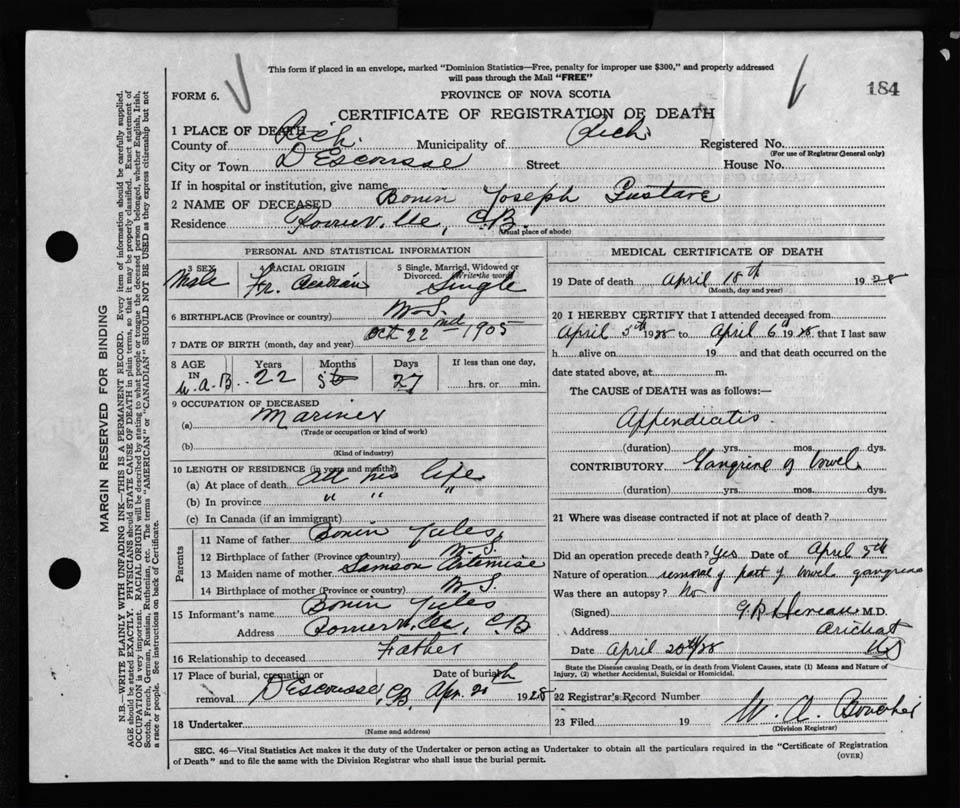 This form if placed in an envelope, marked "Dominion Statistics—Free, penalty for improper use $300," and properly addressed
will pass through the Mail "FREE"
184
FORM 6.
PROVINCE OF NOVA SCOTIA
CERTIFICATE OF REGISTRATION OF DEATH
1 PLACE OF DEATH
County of Rich. Municipality of Rich. Registered No.
(For use of Registrar General only)
City or Town D'Escousse Street House No.
If in hospital or institution, give name
2 NAME OF DECEASED Bonin Joseph Gustave
Residence C.B.
(Usual place of abode)
PERSONAL AND STATISTICAL INFORMATION
3 SEX Male
4 RACIAL ORIGIN Fr.
5 Single, Married, Widowed or Divorced. Write the word Single
6 BIRTHPLACE (Province or country) N.S.
7 DATE OF BIRTH (month, day and year) Oct 22nd 1905
8 AGE IN Years 22 Months 5 Days 27 If less than one day, hrs. or min.
9 OCCUPATION OF DECEASED
(a) Mariner
(Trade or occupation or kind of work)
(b)
(Kind of industry)
10 LENGTH OF RESIDENCE (in years and months)
(a) At place of death All his life
(b) In province " " "
(c) In Canada (if an immigrant)
Parents
11 Name of father Bonin Jules
12 Birthplace of father (Province or country) N.S.
13 Maiden name of mother Samson Artemise
14 Birthplace of mother (Province or country) N.S.
15 Informant's name Bonin Jules
Address C.B
16 Relationship to deceased Father
17 Place of burial, cremation or removal D'Escousse, C.B. Date of burial Apr. 20th 1928
18 Undertaker
(Name and address)
MEDICAL CERTIFICATE OF DEATH
19 Date of death April 18th 1928
(Month, day and year)
20 I HEREBY CERTIFY that I attended deceased from
April 5th 1928 to April 6th 1928 that I last saw
h alive on 19 and that death occurred on the
date stated above, at m.
The CAUSE of DEATH was as follows:—
Appendicitis.
(duration) yrs. mos. dys.
CONTRIBUTORY Gangrene of bowel
(duration) yrs. mos. dys.
21 Where was disease contracted if not at place of death?
Did an operation precede death? Yes Date of April 5th
Nature of operation removal of part of bowel gangrene
Was there an autopsy? No
(Signed) M.D.
Address Arichat
Date April 20th/28 NS
State the Disease causing Death, or in death from Violent Causes, state (1) Means and Nature of
Injury, (2) whether Accidental, Suicidal or Homicidal.
22 Registrar's Record Number
23 Filed 19 Boucher
(Division Registrar)
SEC. 46—Vital Statistics Act makes it the duty of the Undertaker or person acting as Undertaker to obtain all the particulars required in the "Certificate of Registration
of Death" and to file the same with the Division Registrar who shall issue the burial permit.
(OVER)
MARGIN RESERVED FOR BINDING
N.B.—WRITE PLAINLY WITH UNFADING INK—THIS IS A PERMANENT RECORD. Every item of information should be carefully supplied.
AGE should be stated EXACTLY. PHYSICIANS should STATE CAUSE OF DEATH in plain terms, so that it may be properly classified. Exact statement of
OCCUPATION is very important. RACIAL ORIGIN will be described by stating to what people or tongue the deceased person belonged, whether English, Irish,
Scotch, French, German, Russian, Ruthenian, etc. The terms "AMERICAN" or "CANADIAN" SHOULD NOT BE USED as they express citizenship but not
a race or people. See instructions on back of Certificate.